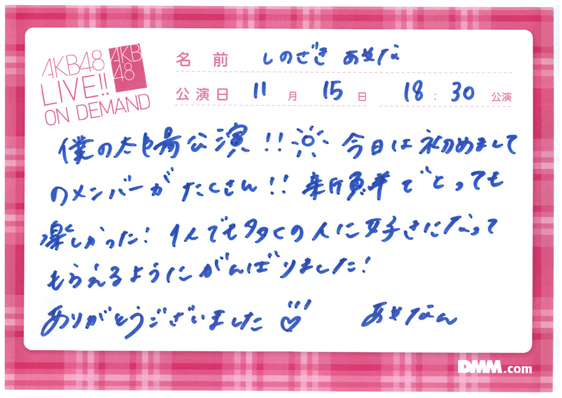 AKB48
LIVE!!
ON DEMAND
AKB
48
名前 しのざき あやな
公演日 11月 15日 18:30 公演
僕の太陽公演!! 今日は初めまして
のメンバーがたくさん!! 新鮮でとっても
楽しかった! 1人でも多くの人に好きになって
もらえるようにがんばりました!
ありがとうございました♡
あやなん
DMM.com